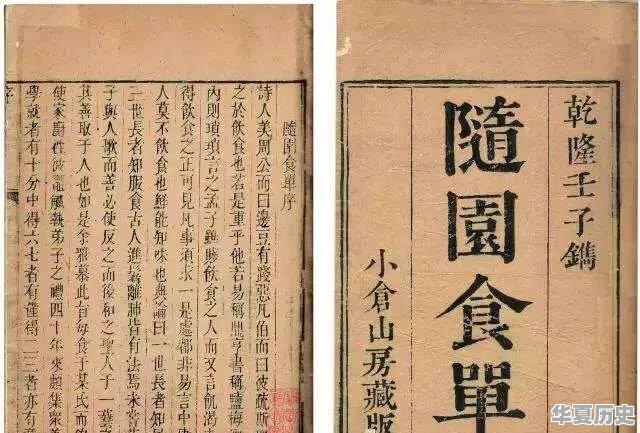 乾隆壬子鐫
隨園食單
小倉山房藏版
隨園食單序
詩人美周公而曰籩豆有踐惡凡伯而曰彼疏斯
之於飲食也若是重乎他若易稱鼎亨書稱鹽梅
內則瑣瑣言之孟子雖賤飲食之人而又言飢渴
得飲食之正可見凡事須求一是處都非易言中
人莫不飲食也鮮能知味也典論曰一世長者知
三世長者知服食古人進鬐離肺皆有法焉未
子與人歌而善必使反之而後和之聖人于一藝
其善取于人也如是余雅慕此旨每食于某氏而
使家廚往彼竈觚執弟子之禮四十年來頗集眾
學就者有十分中得六七者有僅得二三者亦有
序
华夏历史